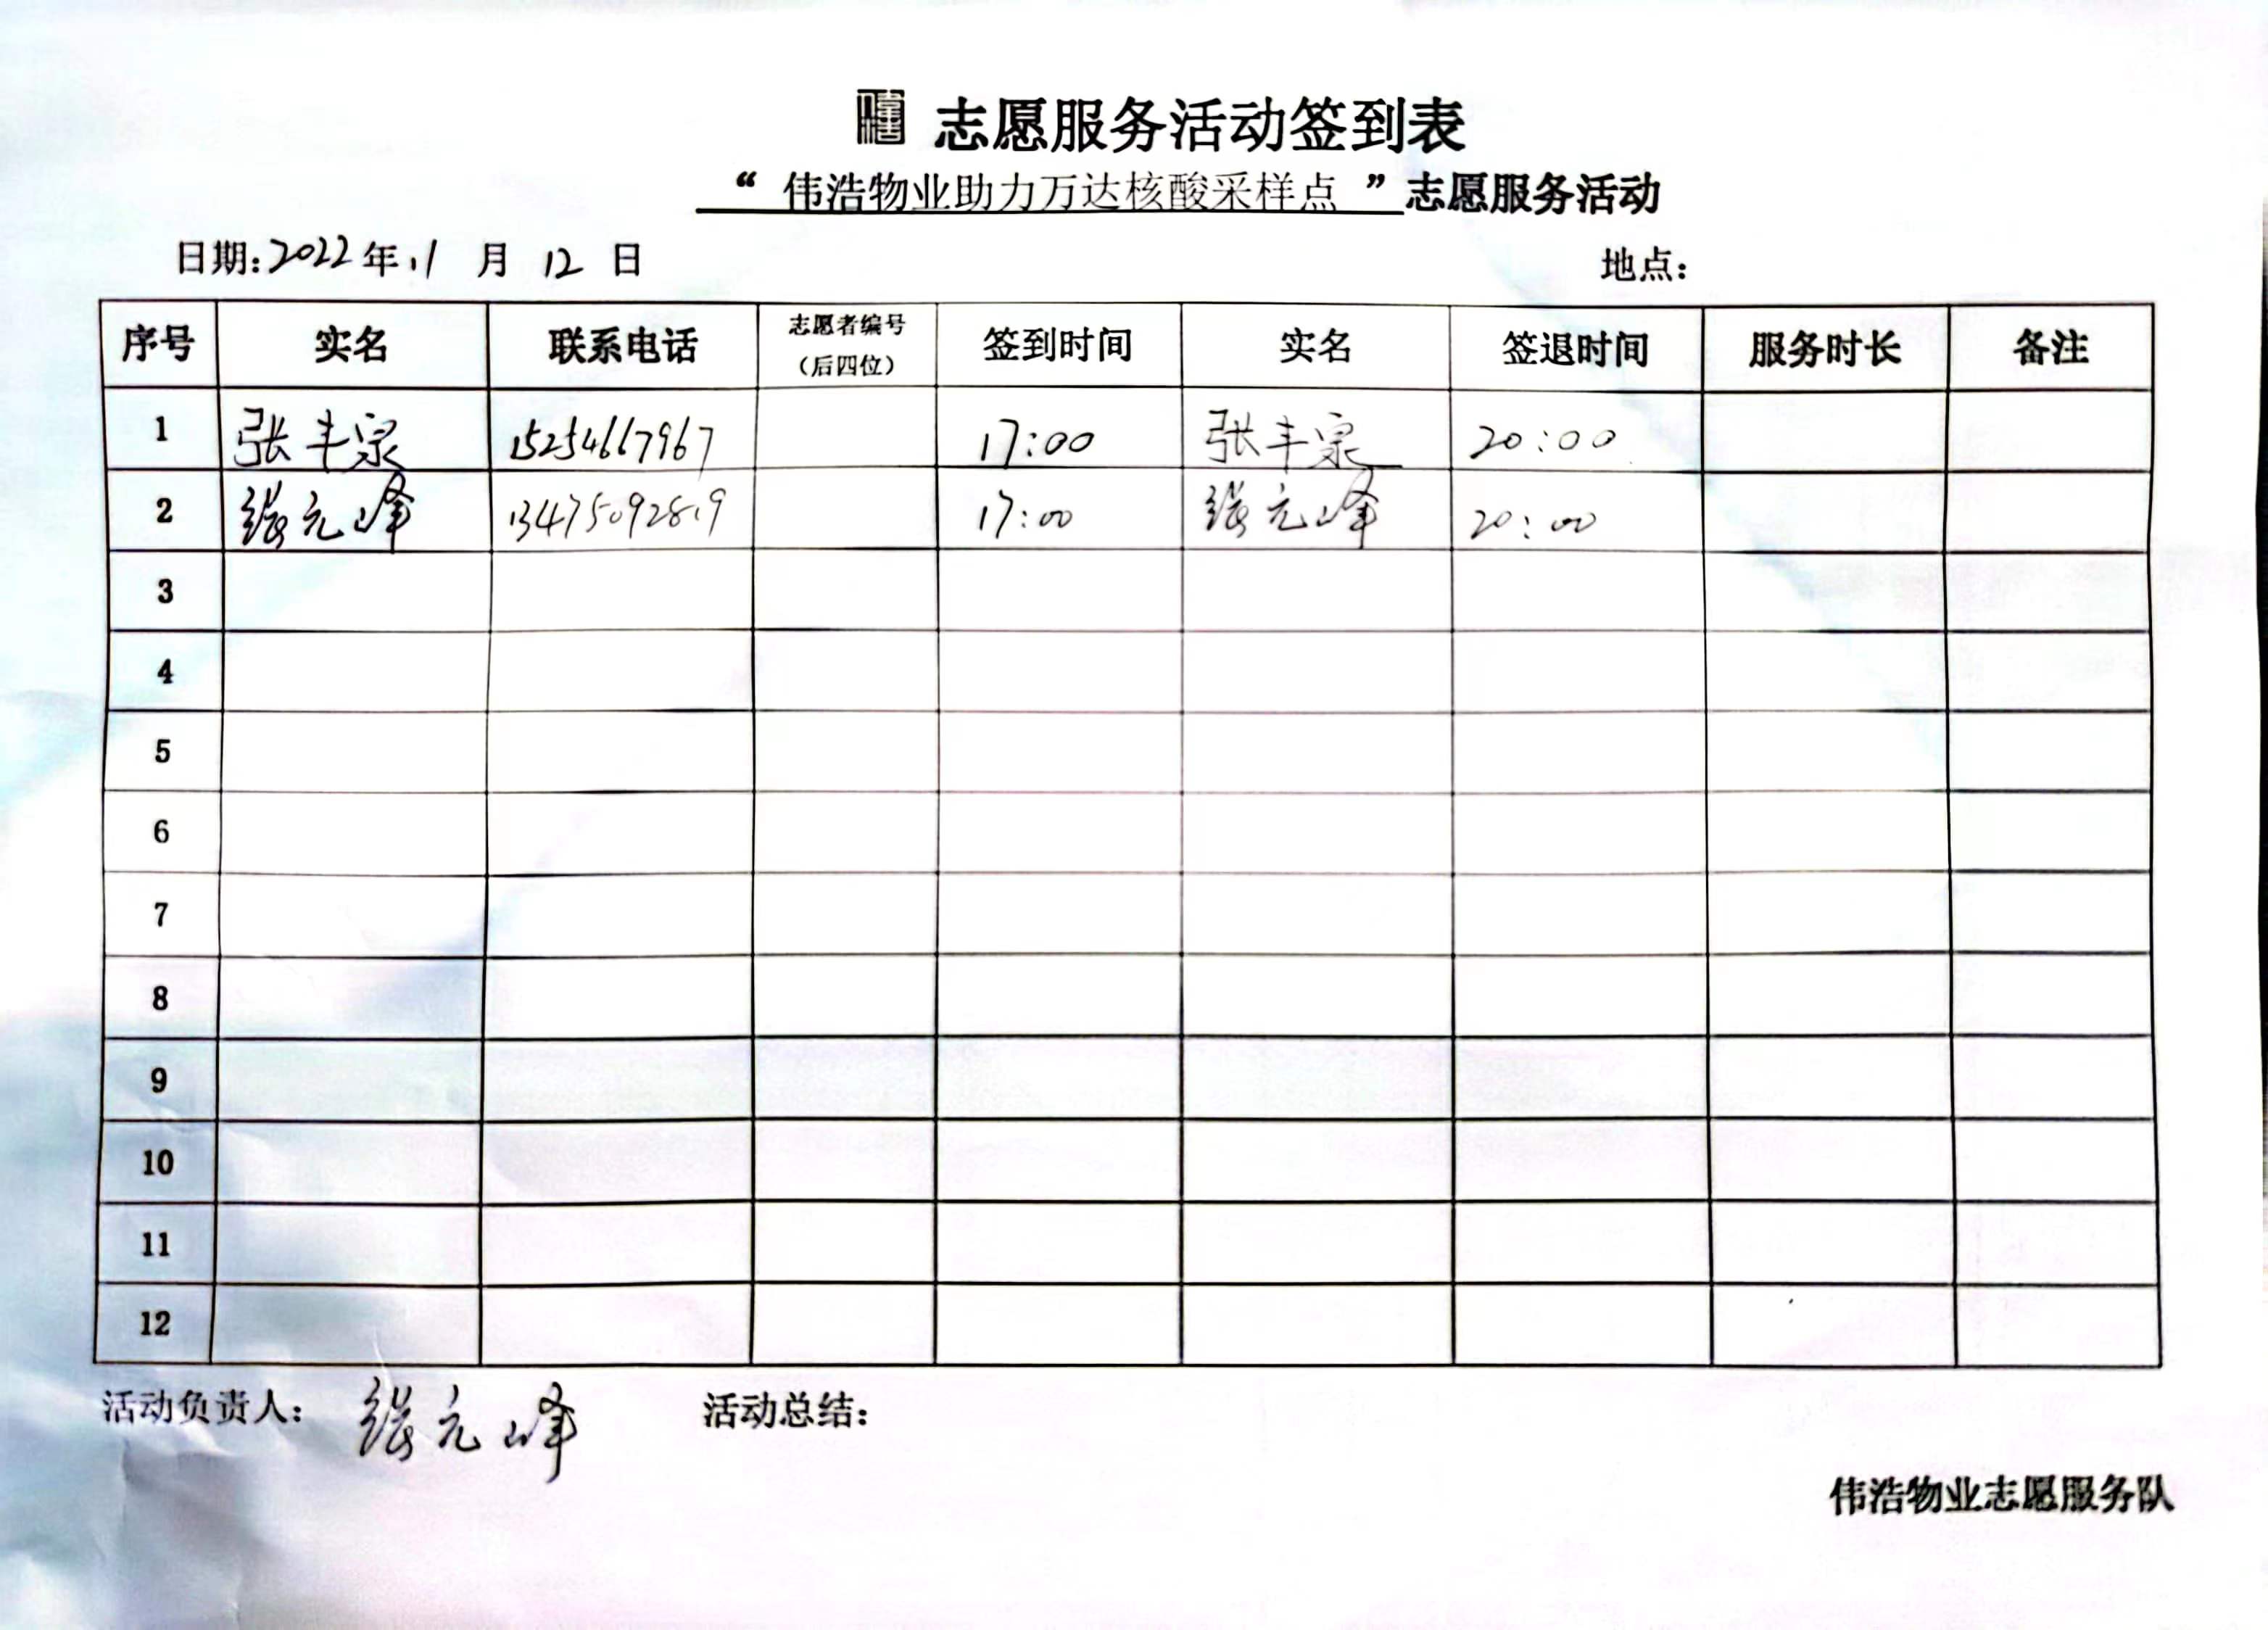 志愿服务活动签到表
“ 伟浩物业助力万达核酸采样点 ”志愿服务活动
日期:2022年11月12日 地点:
序号 实名 联系电话 志愿者编号（后四位） 签到时间 实名 签退时间 服务时长 备注
1 张丰泉 15254667967 17:00 张丰泉 20:00
2 张元峰 13475092819 17:00 张元峰 20:00
3
4
5
6
7
8
9
10
11
12
活动负责人: 张元峰 活动总结:
伟浩物业志愿服务队